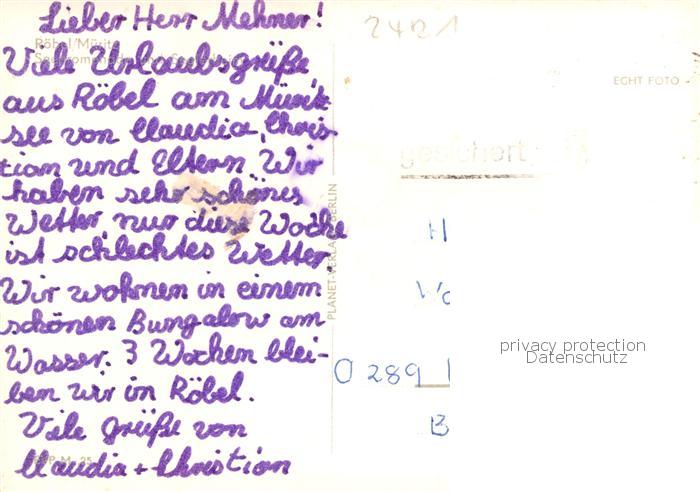 Lieber Herr Mehner!
Viele Urlaubsgrüße
aus Röbel am Müritz-
see von Claudia, Chris-
tian und Eltern. Wir
haben sehr schönes
Wetter, nur diese Woche
ist schlechtes Wetter.
Wir wohnen in einem
schönen Bungalow am
Wasser. 3 Wochen blei-
ben wir in Röbel.
Viele grüße von
Claudia + Christian
Röbel/Müritz
PLANET-VERLAG BERLIN
2421
ECHT FOTO
gesichert
H
Wo
O 289
B
privacy protection
Datenschutz